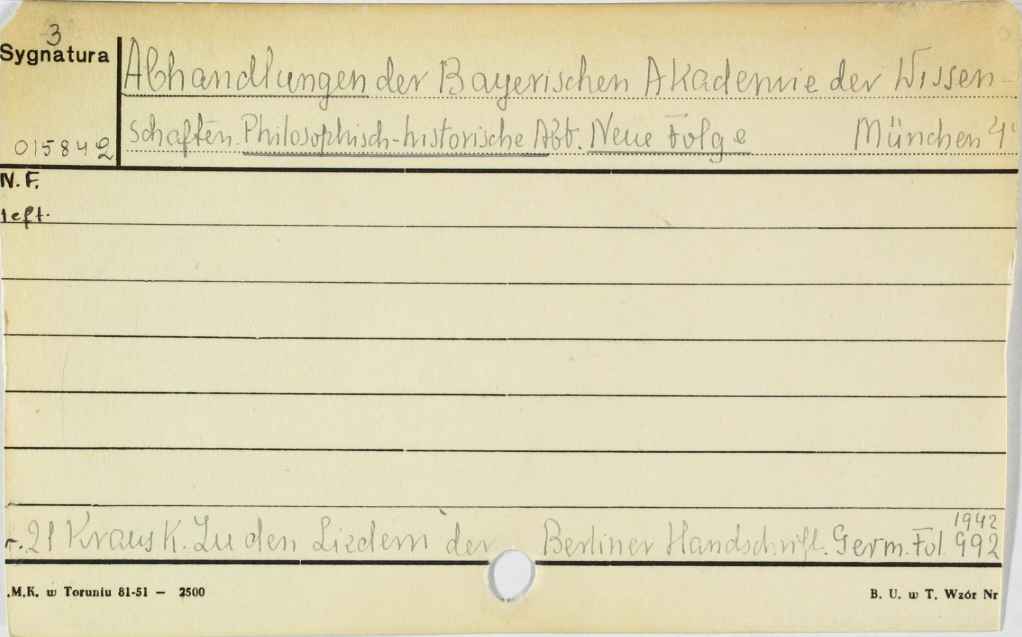 3
Sygnatura
Abhandlungen der Bayerischen Akademie der Wissen-
015842
schaften Philosophisch-historische Abt. Neue Folge München 4°
N.F.
Heft.
r. 21 Kraus K. Zu den Liedern der Berliner Handschrift. Germ. Fol 992
1942
.M.K. w Toruniu 81-51 — 2500
B. U. w T. Wzór Nr